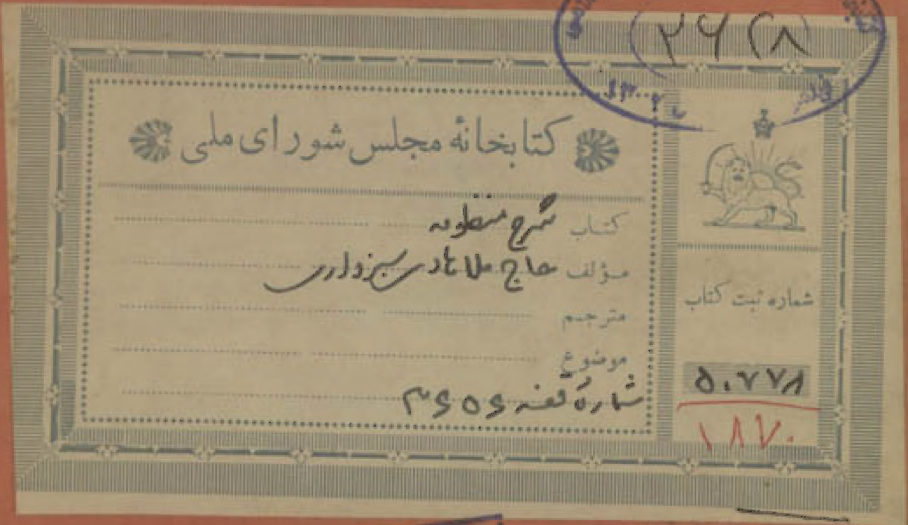 ۲۶۲۸
کتابخانهٔ مجلس شورای ملی
کتاب شرح منظومه
مؤلف حاج ملا هادی سبزواری
مترجم
موضوع
شمارهٔ قفسه ۳۶۵۶
شماره ثبت کتاب
۵۰۷۷۸
۱۸۷۰